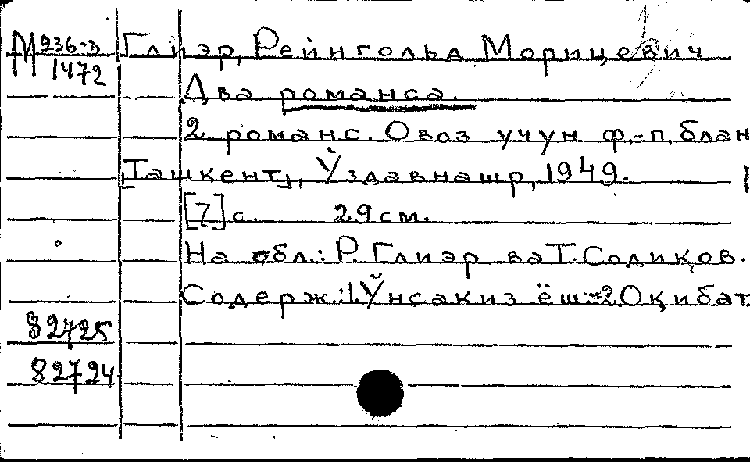 М 236-3
1472
Глиэр, Рейнгольд Морицевич
Два романса.
2 романс. Овоз учун ф.-п. блан
[Ташкент], Ўздавнашр, 1949.
[7] с. 29 см.
На обл.: Р. Глиэр ва Т. Содиқов.
Содерж.: 1. Ўнсакиз ёш.-2. Оқибат.
82425
82724